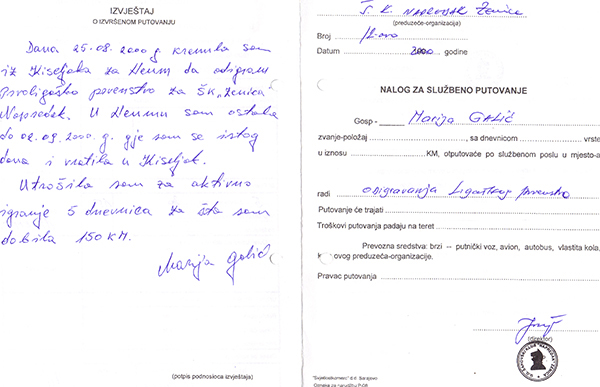 IZVJEŠTAJ
O IZVRŠENOM PUTOVANJU
Dana 25.08.2000 g krenula sam
iz Kiseljaka za Neum da odigram
Prvoligaško prvenstvo za ŠK „Zenica"
Napredak. U Neumu sam ostala
do 02.09.2000.g. gje sam se istog
dana i vratila u Kiseljak.
Utrošila sam za aktivno
igranje 5 dnevnica za šta sam
dobila 150 KM.
Marija Galić
(potpis podnosioca izvještaja)
Š.K. NAPREDAK Zenica
(preduzeće-organizacija)
Broj
Datum 2000 godine
NALOG ZA SLUŽBENO PUTOVANJE
Gosp - Marija GALIĆ
zvanje-položaj , sa dnevnicom vrste
u iznosu KM, otputovaće po službenom poslu u mjesto-a
radi odigravanja Ligaškog prvenstva
Putovanje će trajati
Troškovi putovanja padaju na teret
Prevozna sredstva: brzi -- putnički voz, avion, autobus, vlastita kola,
ovog preduzeća-organizacije.
Pravac putovanja
(direktor)
"Svjetlostkomerc" d.d. Sarajevo
Oznaka za narudžbu